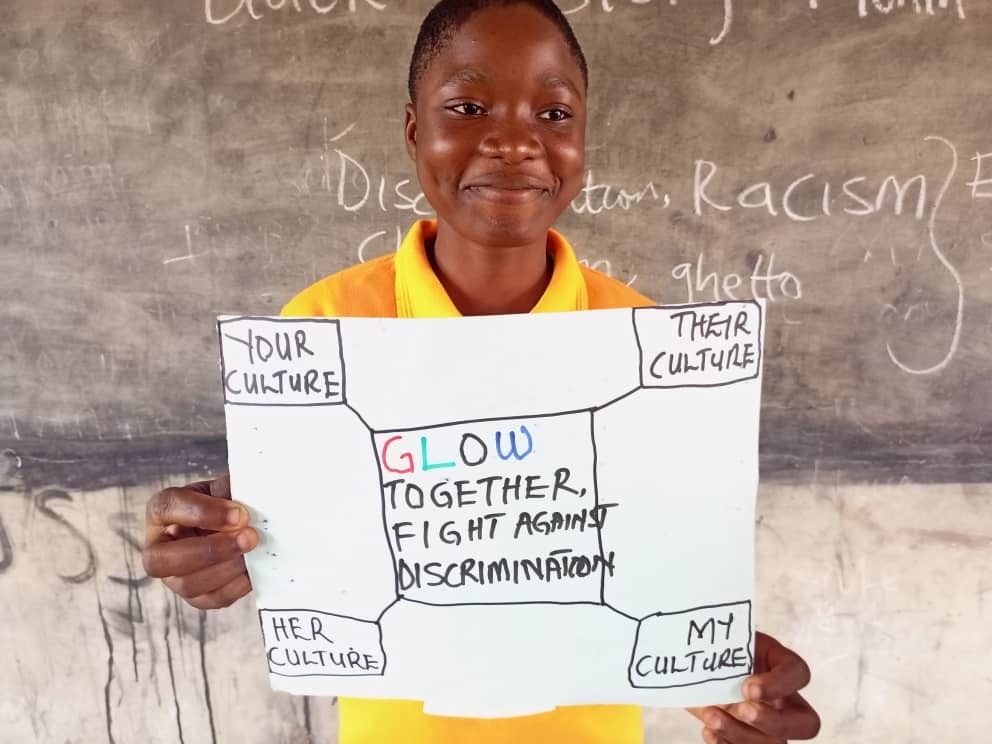 Disc
ation, Racism
ghetto
YOUR
CULTURE
THEIR
CULTURE
GLOW
TOGETHER,
FIGHT AGAINST
DISCRIMINATION
HER
CULTURE
MY
CULTURE